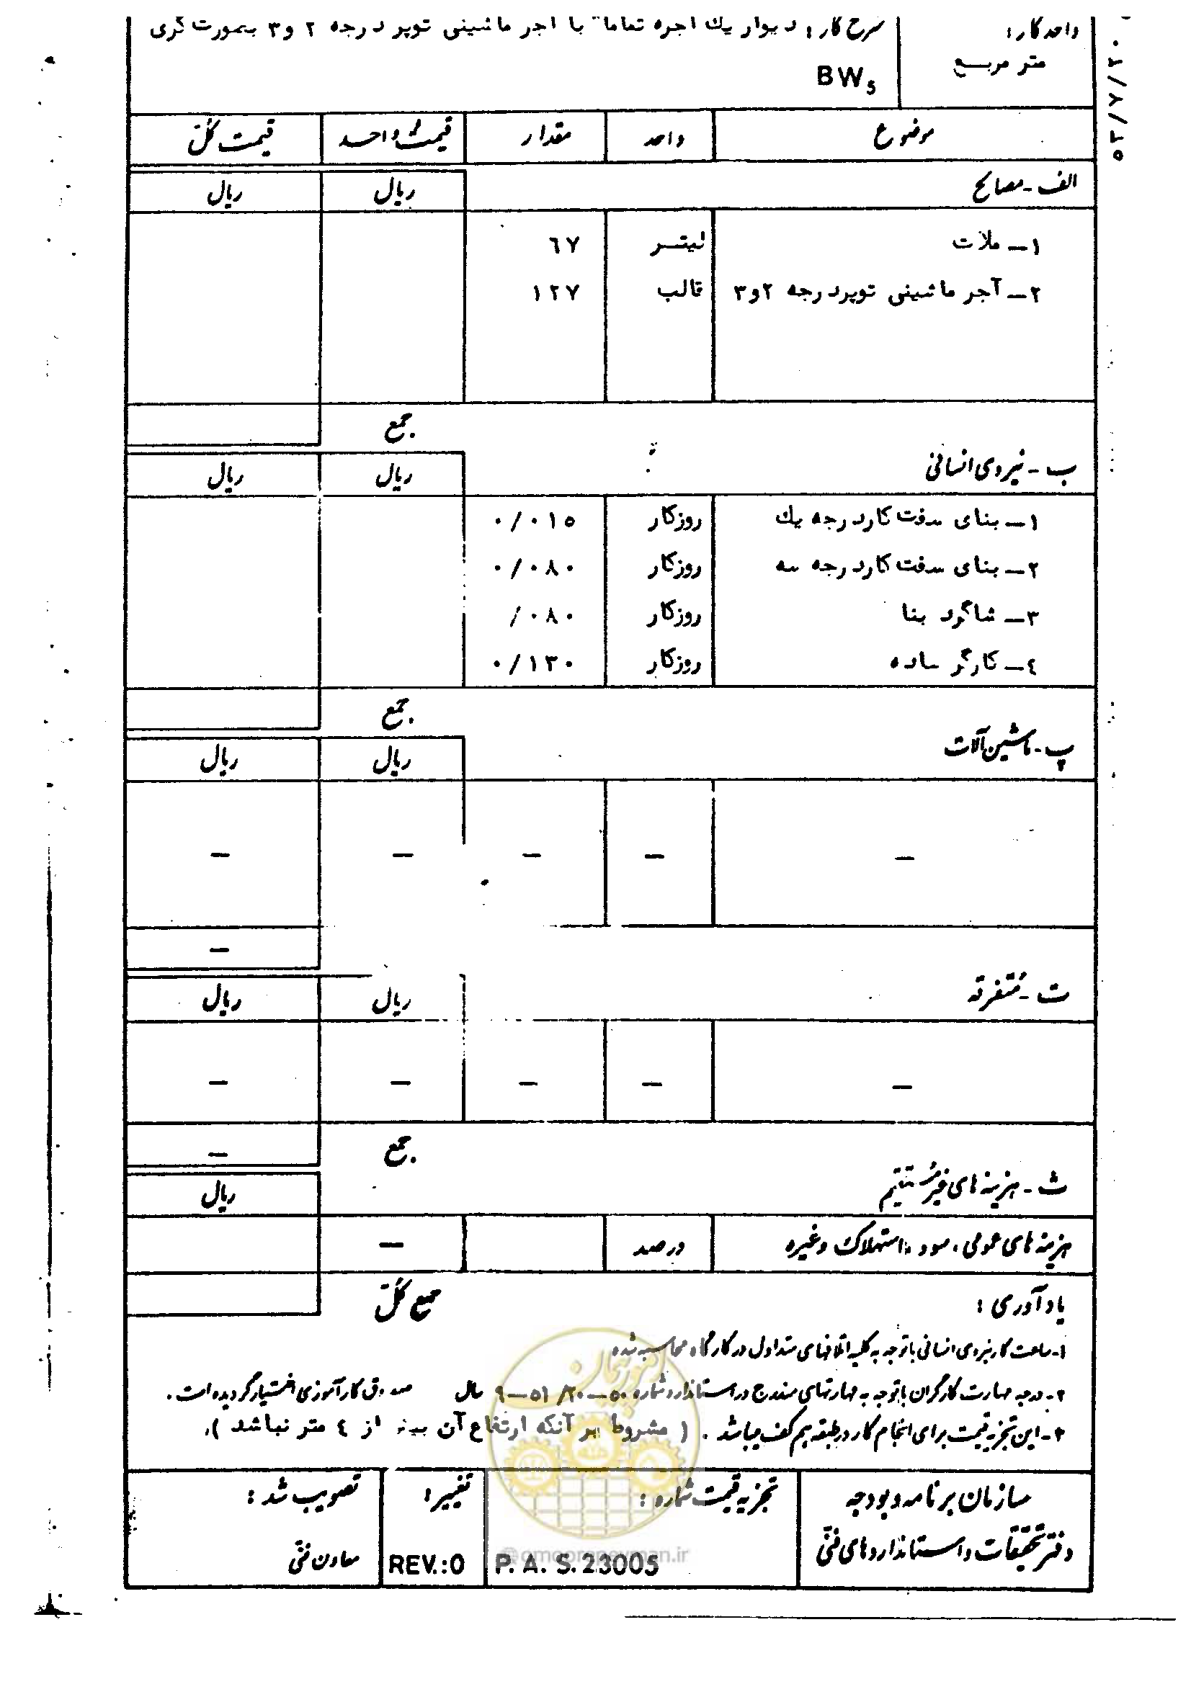 واحد کار: شرح کار: دیوار یك آجره تماماً با آجر ماشینی توپر درجه ۲ و ۳ بصورت کری
متر مربع
BW5
۵۳/۷/۳۰
موضوع واحد مقدار قیمت واحد قیمت کل
الف - مصالح ریال ریال
۱ – ملات لیتر ۶۷
۲ – آجر ماشینی توپر درجه ۲ و ۳ قالب ۱۲۷
جمع
ب - نیروی انسانی ریال ریال
۱ – بنای سفت کار درجه یك روزکار ۰/۰۱۵
۲ – بنای سفت کار درجه سه روزکار ۰/۰۸۰
۳ – شاگرد بنا روزکار /۰۸۰
٤ – کارگر ساده روزکار ۰/۱۳۰
جمع
پ - ماشین آلات ریال ریال
– – – – –
–
ت - متفرقه ریال ریال
– – – – –
جمع –
ث - هزینه های غیر مستقیم ریال
هزینه های عمومی ، سود ، استهلاک و غیره درصد –
جمع کل
یادآوری :
۱- ساعت کار نیروی انسانی با توجه به کلیه اتلافهای متداول در کارگاه محاسبه شده
۲- درجه مهارت کارگران با توجه به مهارتهای مندرج در استاندارد شماره ۵۰–۲۰/ ۵۱–۹ سال صندوق کارآموزی اختیار گردیده است .
۳- این تجزیه قیمت برای انجام کار در طبقه هم کف میباشد . ( مشروط بر آنکه ارتفاع آن بیش از ٤ متر نباشد ).
سازمان برنامه و بودجه تجزیه قیمت شماره : تغییر : تصویب شد :
دفتر تحقیقات و استانداردهای فنی P. A. S. 23005 REV.:0 معاون فنی
امور پیمان
@omoorepeyman.ir